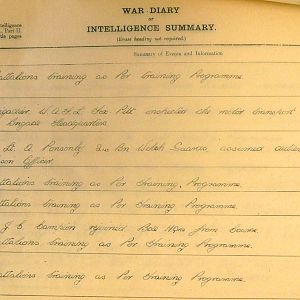 WAR DIARY
OF
INTELLIGENCE SUMMARY.
(Erase heading not required.)
Intelligence
, Part II.
title pages
Summary of Events and Information
Battalions training as Per Training Programme.
Brigadier W.A.F.L. Fox Pitt inspected the motor transport
Brigade Headquarters.
Lt. A Ponsonby Bn Welsh Guards assumed duties
Officer.
Battalions training as Per Training Programme.
Battalions training as Per Training Programme.
J G rejoined Bde HQrs from Course
Battalions training as Per Training Programme.
Battalions training as Per Training Programme.